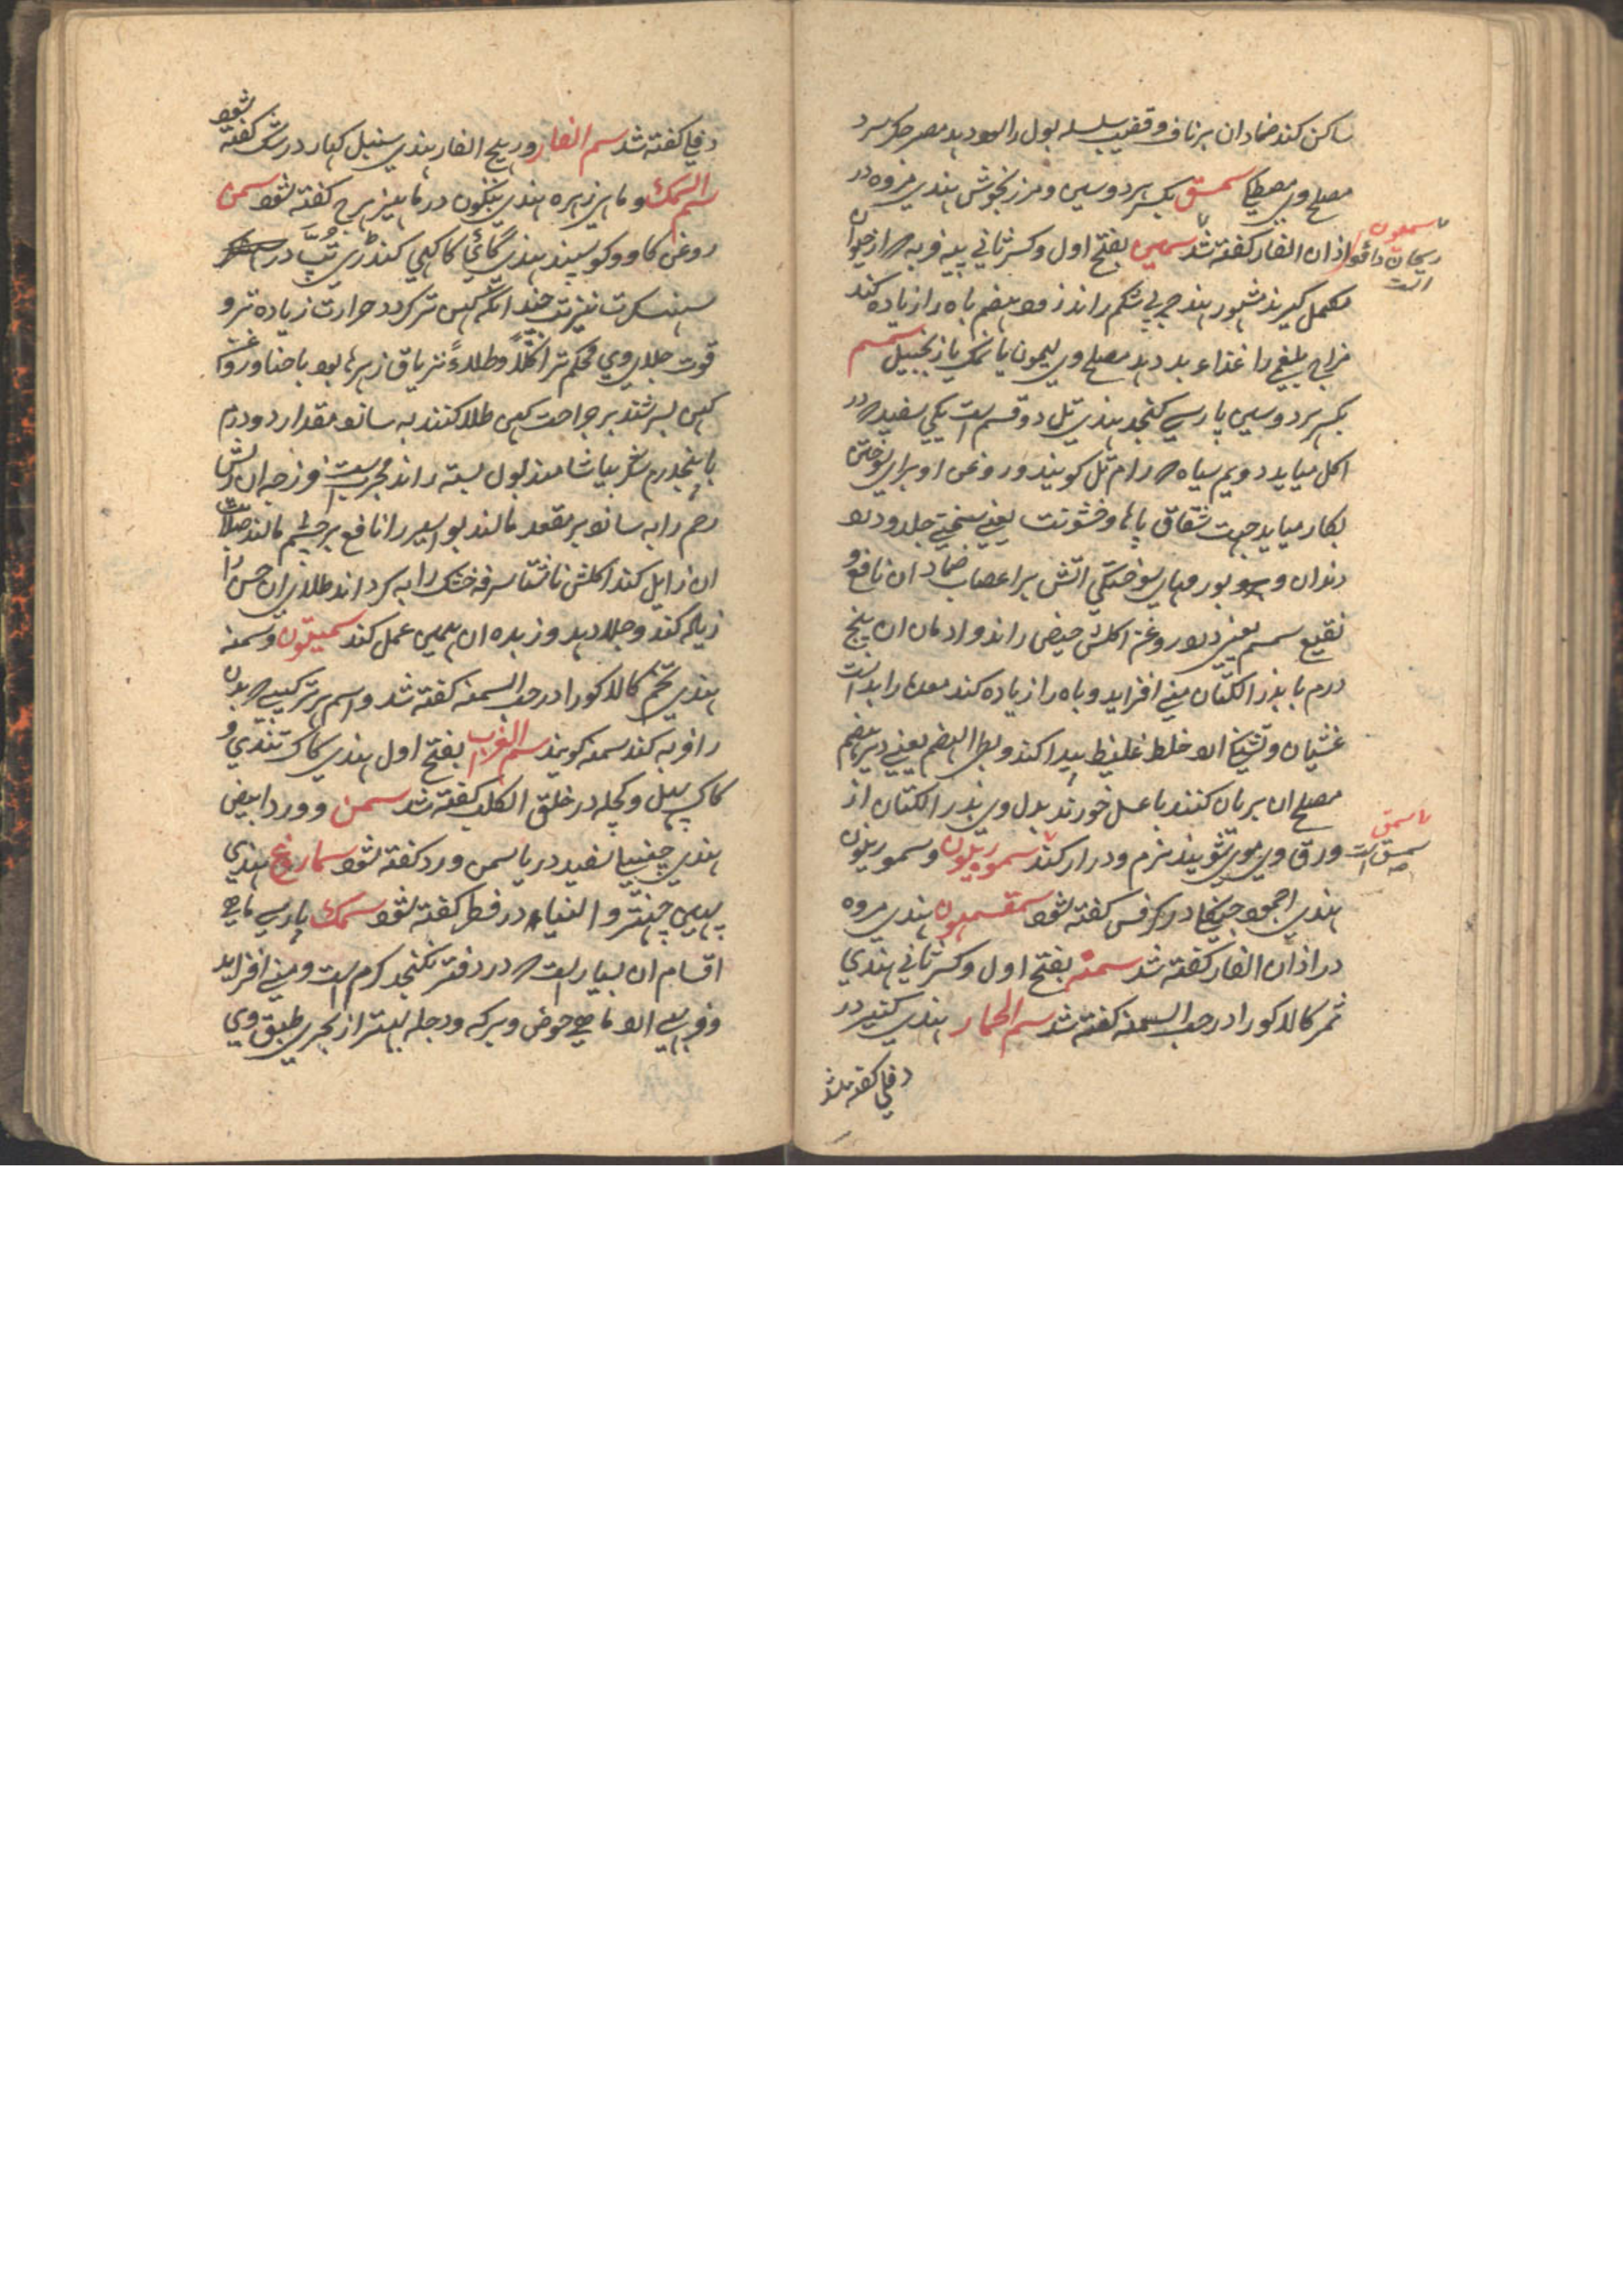 ساکن کند ضماد ان بر ناف و قضیب سلسله بول را سود دهد مضر جگر سرد
مصلح وی مصطکی سمسق بکسر هر دو سین و مرزنجوش هندی مروه در
اذان الفار کفته شد سمین بفتح اول و کسر ثانی پیه فربه که از حیوان
مکمل کیرند مشهور هند چربی شکم راند زود هضم باه را زیاده کند
مزاج بلغمی را غذاء بد دهد مصلح وی لیمون یا نمک یا زنجبیل سمسم
بکسر هر دو سین پارسی کنجد هندی تل دو قسم است یکی سفید که در
اکل میاید دویم سیاه که رام تل کویند و روغن او برای سوختن
بکار میاید جهت شقاق پاها و خشونت یعنی سختی جلد و درد
دندان و ورمهای سوختکی اتش بر اعصاب ضماد ان نافع و
نقیع سمسم یعنی روغن اکلش حیض راند و ادمان ان پنج
درم با بذر الکتان منی افزاید و باه را زیاده کند معده را بد است
غشیان و تشنکی اود خلط غلیظ پیدا کند و بطی الهضم یعنی دیر هضم
مصلح ان بریان کنند با عسل خورند بدل وی بذر الکتان از
ورق وی موی شویند نرم و دراز کند سموریلون و سموریلون
هندی اجمود در کرفس کفته شود سمقسمون هندی مروه
در اذان الفار کفته شد سمنه بفتح اول و کسر ثانی هندی
ثمر کالاکورا در حب السمنه کفته شد سم الحمار هندی کنیر در
دفلی کفته شد
سمعون
ریحان داود
است
سمسق
است
دفلی کفته شد سم الفار و ریح الفار هندی سنبل کهار در شک کفته شود
سم السمک و ماهی زهره هندی در ماهیزهرج کفته شود سمن
روغن کاو و کوسپند هندی کائی کا کهی کندری تپ در
سنسکرت چندانکه کهن تر کردد حرارت زیاده تر و
قوت جلای وی محکم تر اکلاً و طلاءً تریاق زهرها بود با حنا و روغن
کهن بسرشند بر جراحت کهن طلا کنند به سازد مقدار دو درم
با پنج درم شکر بیاشامند بول بسته راند مجرب است فرزجه ان ریش
رحم را به سازد بر مقعد مالند بواسیر را نافع بر چشم مالند صلابت
ان زایل کند اکلش ناشتا سرفه خشک را به کرداند طلای ان حسن را
زیاده کند و جلا دهد و زبده ان همین عمل کند سمیقون و سمنه
هندی تخم کالاکورا در حب السمنه کفته شد و اسم هر ترکیبی که بدن
را فربه کند سمنه کویند سم الغراب بفتح اول هندی کاک تندی و
کاک پهل و کچله در خانق الکلب کفته شد سمن و ورد ابیض
هندی چنبیلی سفید در یاسمن ورد کفته شود سماروغ هندی
پهین چهتر و در فطر کفته شود سمک پارسی ماهی
اقسام ان بسیار است که در دفتر نکنجد کرم است و منی افزاید
و فربهی اود ماهی حوض و برکه و دجله بهتر از بحری طبق وی